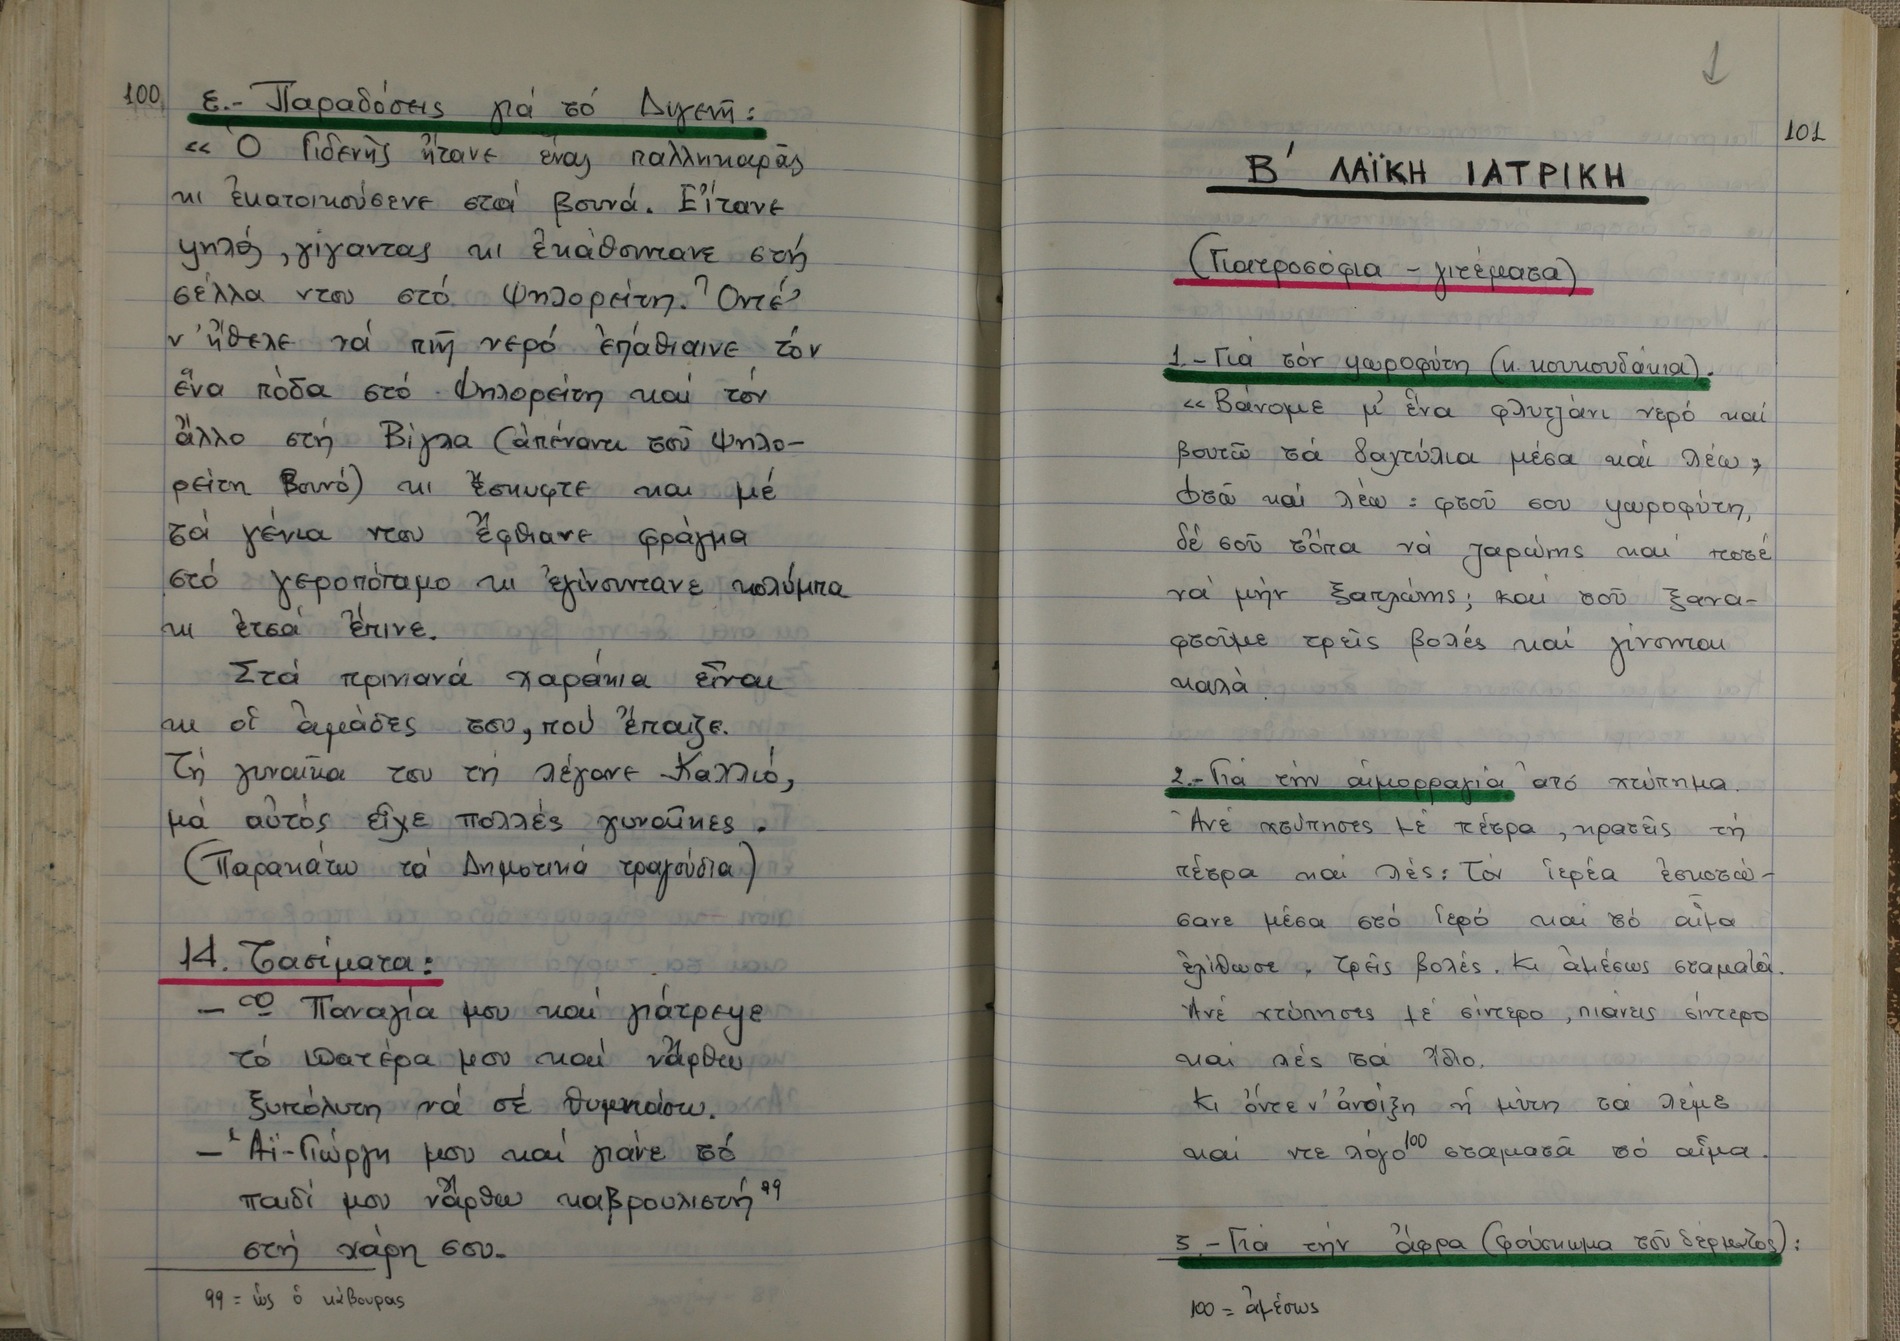 100
ε.- Παραδόσεις γιά τό Διγενῆ:
«Ὁ Γιδενῆς ἤτανε ἕνας παλληκαρᾶς
κι ἐκατοικούσενε στά βουνά. Εἴτανε
ψηλός, γίγαντας κι ἐκάθουντανε στή
σέλλα ντου στό Ψηλορείτη. Ὀντέ
ν' ἤθελε νά πιῆ νερό ἐπάθιαινε τόν
ἕνα πόδα στό Ψηλορείτη καί τόν
ἄλλο στή Βίγλα (ἀπέναντι τοῦ Ψηλο-
ρείτη βουνό) κι ἔσκυφτε και μέ
τά γένια ντου ἔφθιανε φράγμα
στό γεροπόταμο κι ἐγίνουντανε κολύμπα
κι ἐτσά ἔπινε.
Στά πρινιανά χαράκια εἶναι
κι οἱ ἀμάδες του, πού ἔπαιζε.
Τή γυναῖκα του τή λέγανε Καλλιό,
μά αὐτός εἶχε πολλές γυναῖκες.
(Παρακάτω τά Δημοτικά τραγούδια)
14. Τασίματα:
- Ὦ Παναγία μου καί γιάτρεψε
τό πατέρα μου καί νἄρθω
ξυπόλυτη νά σέ θυμιάσω.
- Ἁϊ-Γιώργη μου καί γιάνε τό
παιδί μου νἄρθω καβρουλιστή 99
στή χάρη σου.
99 = ὡς ὁ κάβουρας
1
101
Β΄ ΛΑΪΚΗ ΙΑΤΡΙΚΗ
(Γιατροσόφια - γιτέματα)
1.- Γιά τόν ψωροφύτη (κ. κουκουδάκια).
«Βάνομε μ' ἕνα φλυτζάνι νερό καί
βουτῶ τά δαχτύλια μέσα καί λέω,
Φτῶ καί λέω: φτοῦ σου ψωροφύτη,
δέ σοῦ τόπα νά ζαρώνης καί ποτέ
νά μήν ξαπλώνης; καί τοῦ ξανα-
φτοῦμε τρεῖς βολές καί γίνονται
καλά.
2.- Γιά τήν αἱμορραγία ἀπό χτύπημα.
Ἀνέ χτύπησες μέ πέτρα, κρατεῖς τή
πέτρα καί λές: Τόν ἱερέα ἐσκοτώ-
σανε μέσα στό ἱερό καί τό αἷμα
ἐλίθωσε. τρεῖς βολές. Κι ἀμέσως σταματᾶ.
Ἀνέ χτύπησες μέ σίντερο, πιάνεις σίντερο
και λές τά ἴδιο.
Κι ὄντε ν' ἀνοίξη ἡ μύτη τά λέμε
καί ντε λόγο 100 σταματᾶ τό αἷμα.
3.- Γιά τήν ἄφρα (φούσκωμα τοῦ δέρματος):
100 = ἀμέσως